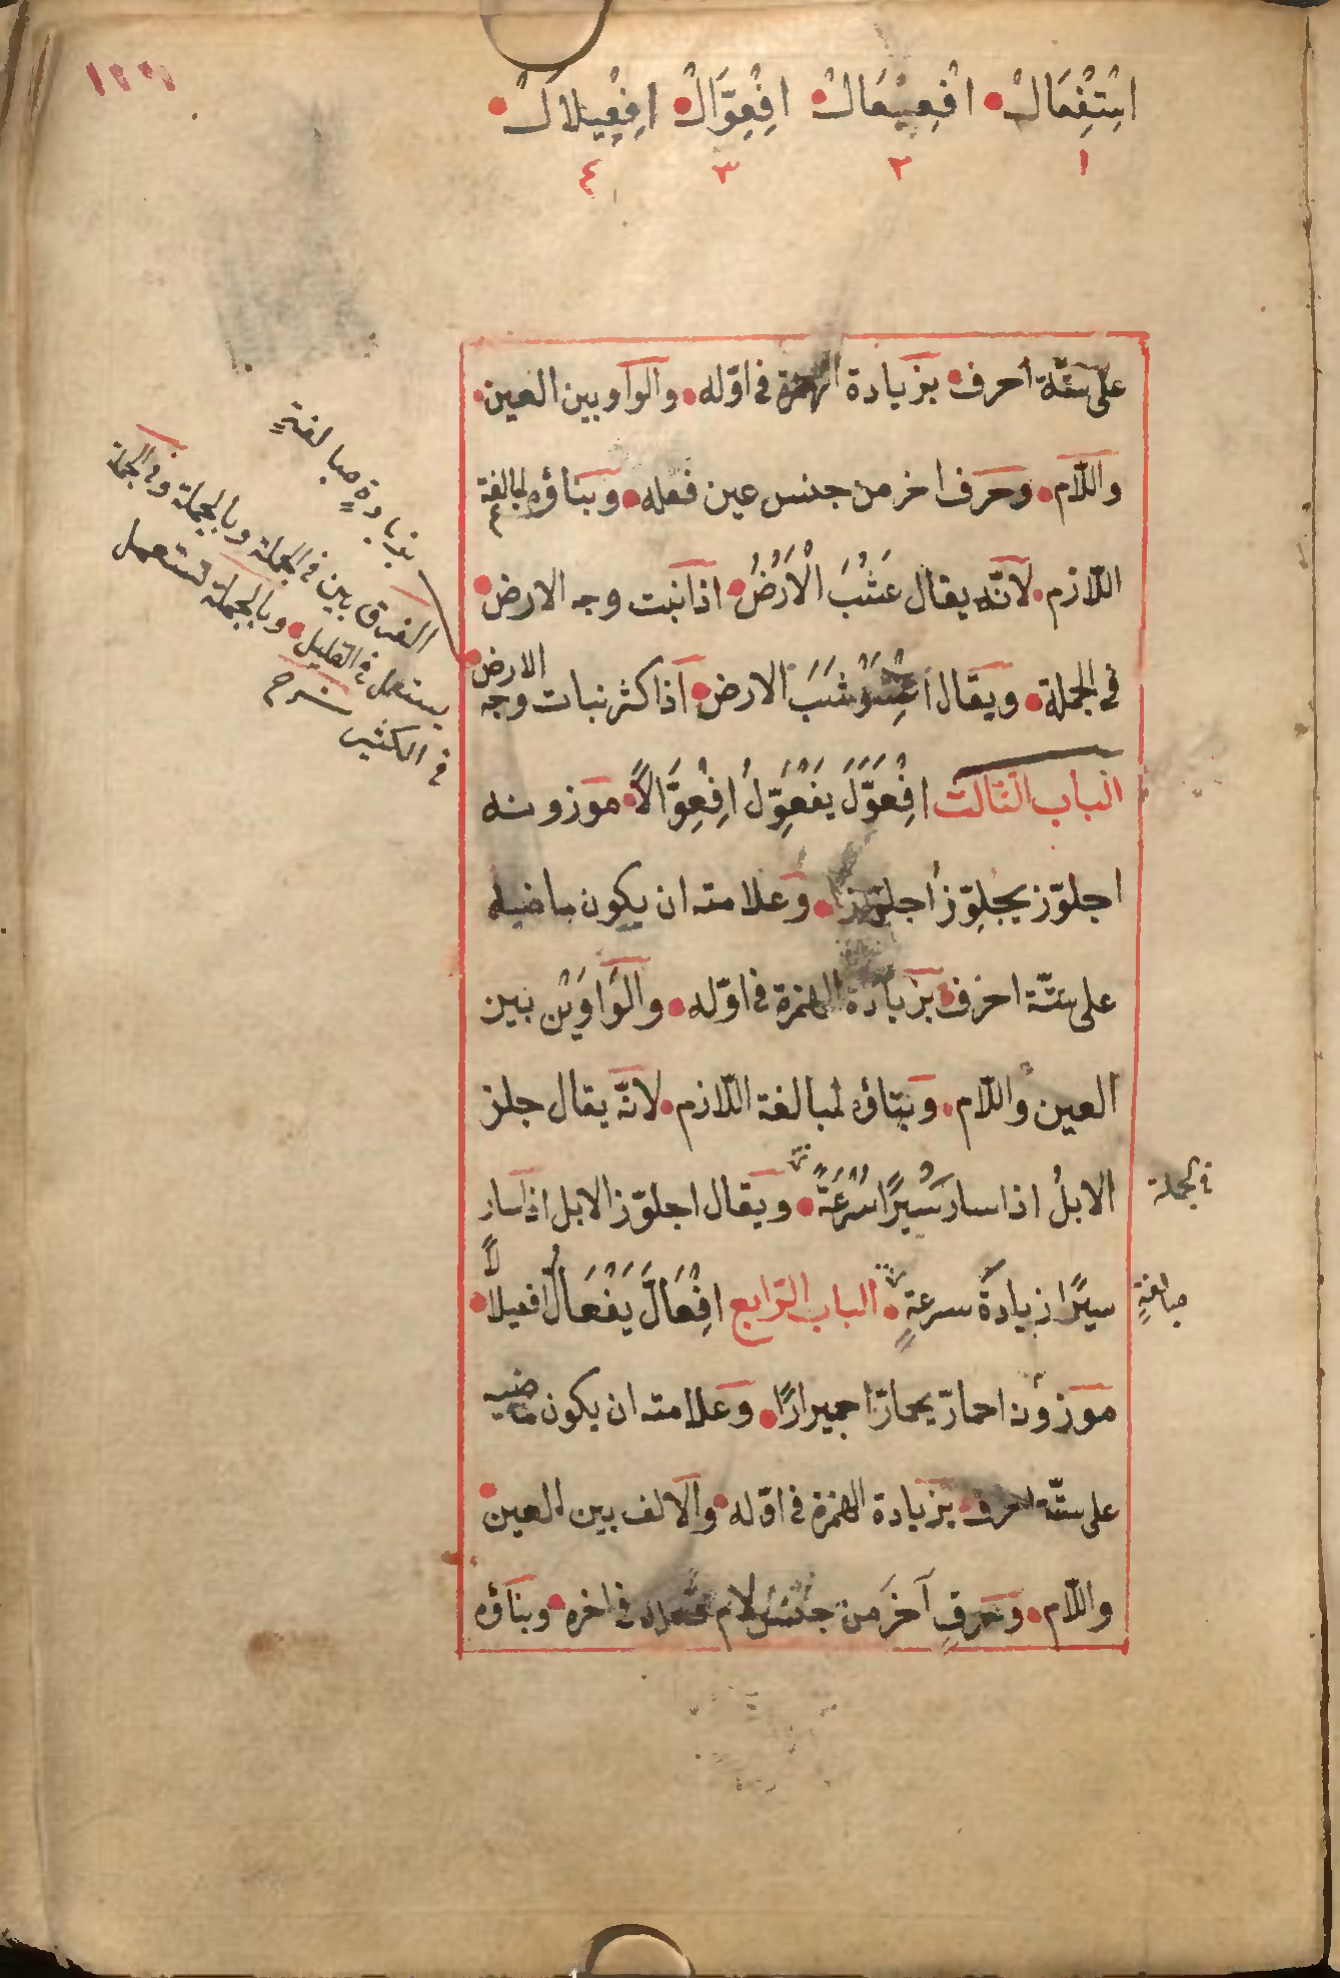 اِسْتِفْعَالْ • اِفْعِيعَالْ • اِفْعِوَّالْ • اِفْعِيلَالْ •
١ ٢ ٣ ٤
على ستّة احرف • بزيادة الهمزة في اوّله • والواو بين العين •
واللّام • وحرف اخر من جنس عين فعله • وبناؤه لمبالغة
اللّازم • لانّه يقال عَشُبَ الْاَرْضُ • اذا نبت وجه الارض •
في الجملة • ويقال اِعْشَوْشَبَ الارض • اذا كثر نبات وجه الارض •
الباب الثالث اِفْعَوَّلَ يَفْعَوِّلُ اِفْعِوَّالًا • موزونه
اجلوّز يجلوّز اجلوّازا • وعلامته ان يكون ماضيه
على ستّة احرف • بزيادة الهمزة في اوّله • والوَاوَيْن بين
العين واللّام • وبناؤه لمبالغة اللّازم • لانّه يقال جلز
الابلُ اذا سار سَيْرًا سُرْعَةً • ويقال اجلوّز الابل اذا سار
سيرًا زيادةَ سرعةٍ • الباب الرّابع اِفْعَالَّ يَفْعَالُّ افعيلالًا •
موزونه احمارّ يحمارّ احميرارًا • وعلامته ان يكون ماضيه
على ستّة احرف • بزيادة الهمزة في اوّله • والالف بين العين •
واللّام • وحرفٍ آخَرَ من جنس لام فعله في اخره • وبناؤه
بزيادةِ مبالغةٍ
الفرق بين في الجملة وبالجملة وفي الجملة
يستعمل في القليل • وبالجملة تستعمل
في الكثير شرح
في الجملة
مبالغةٍ